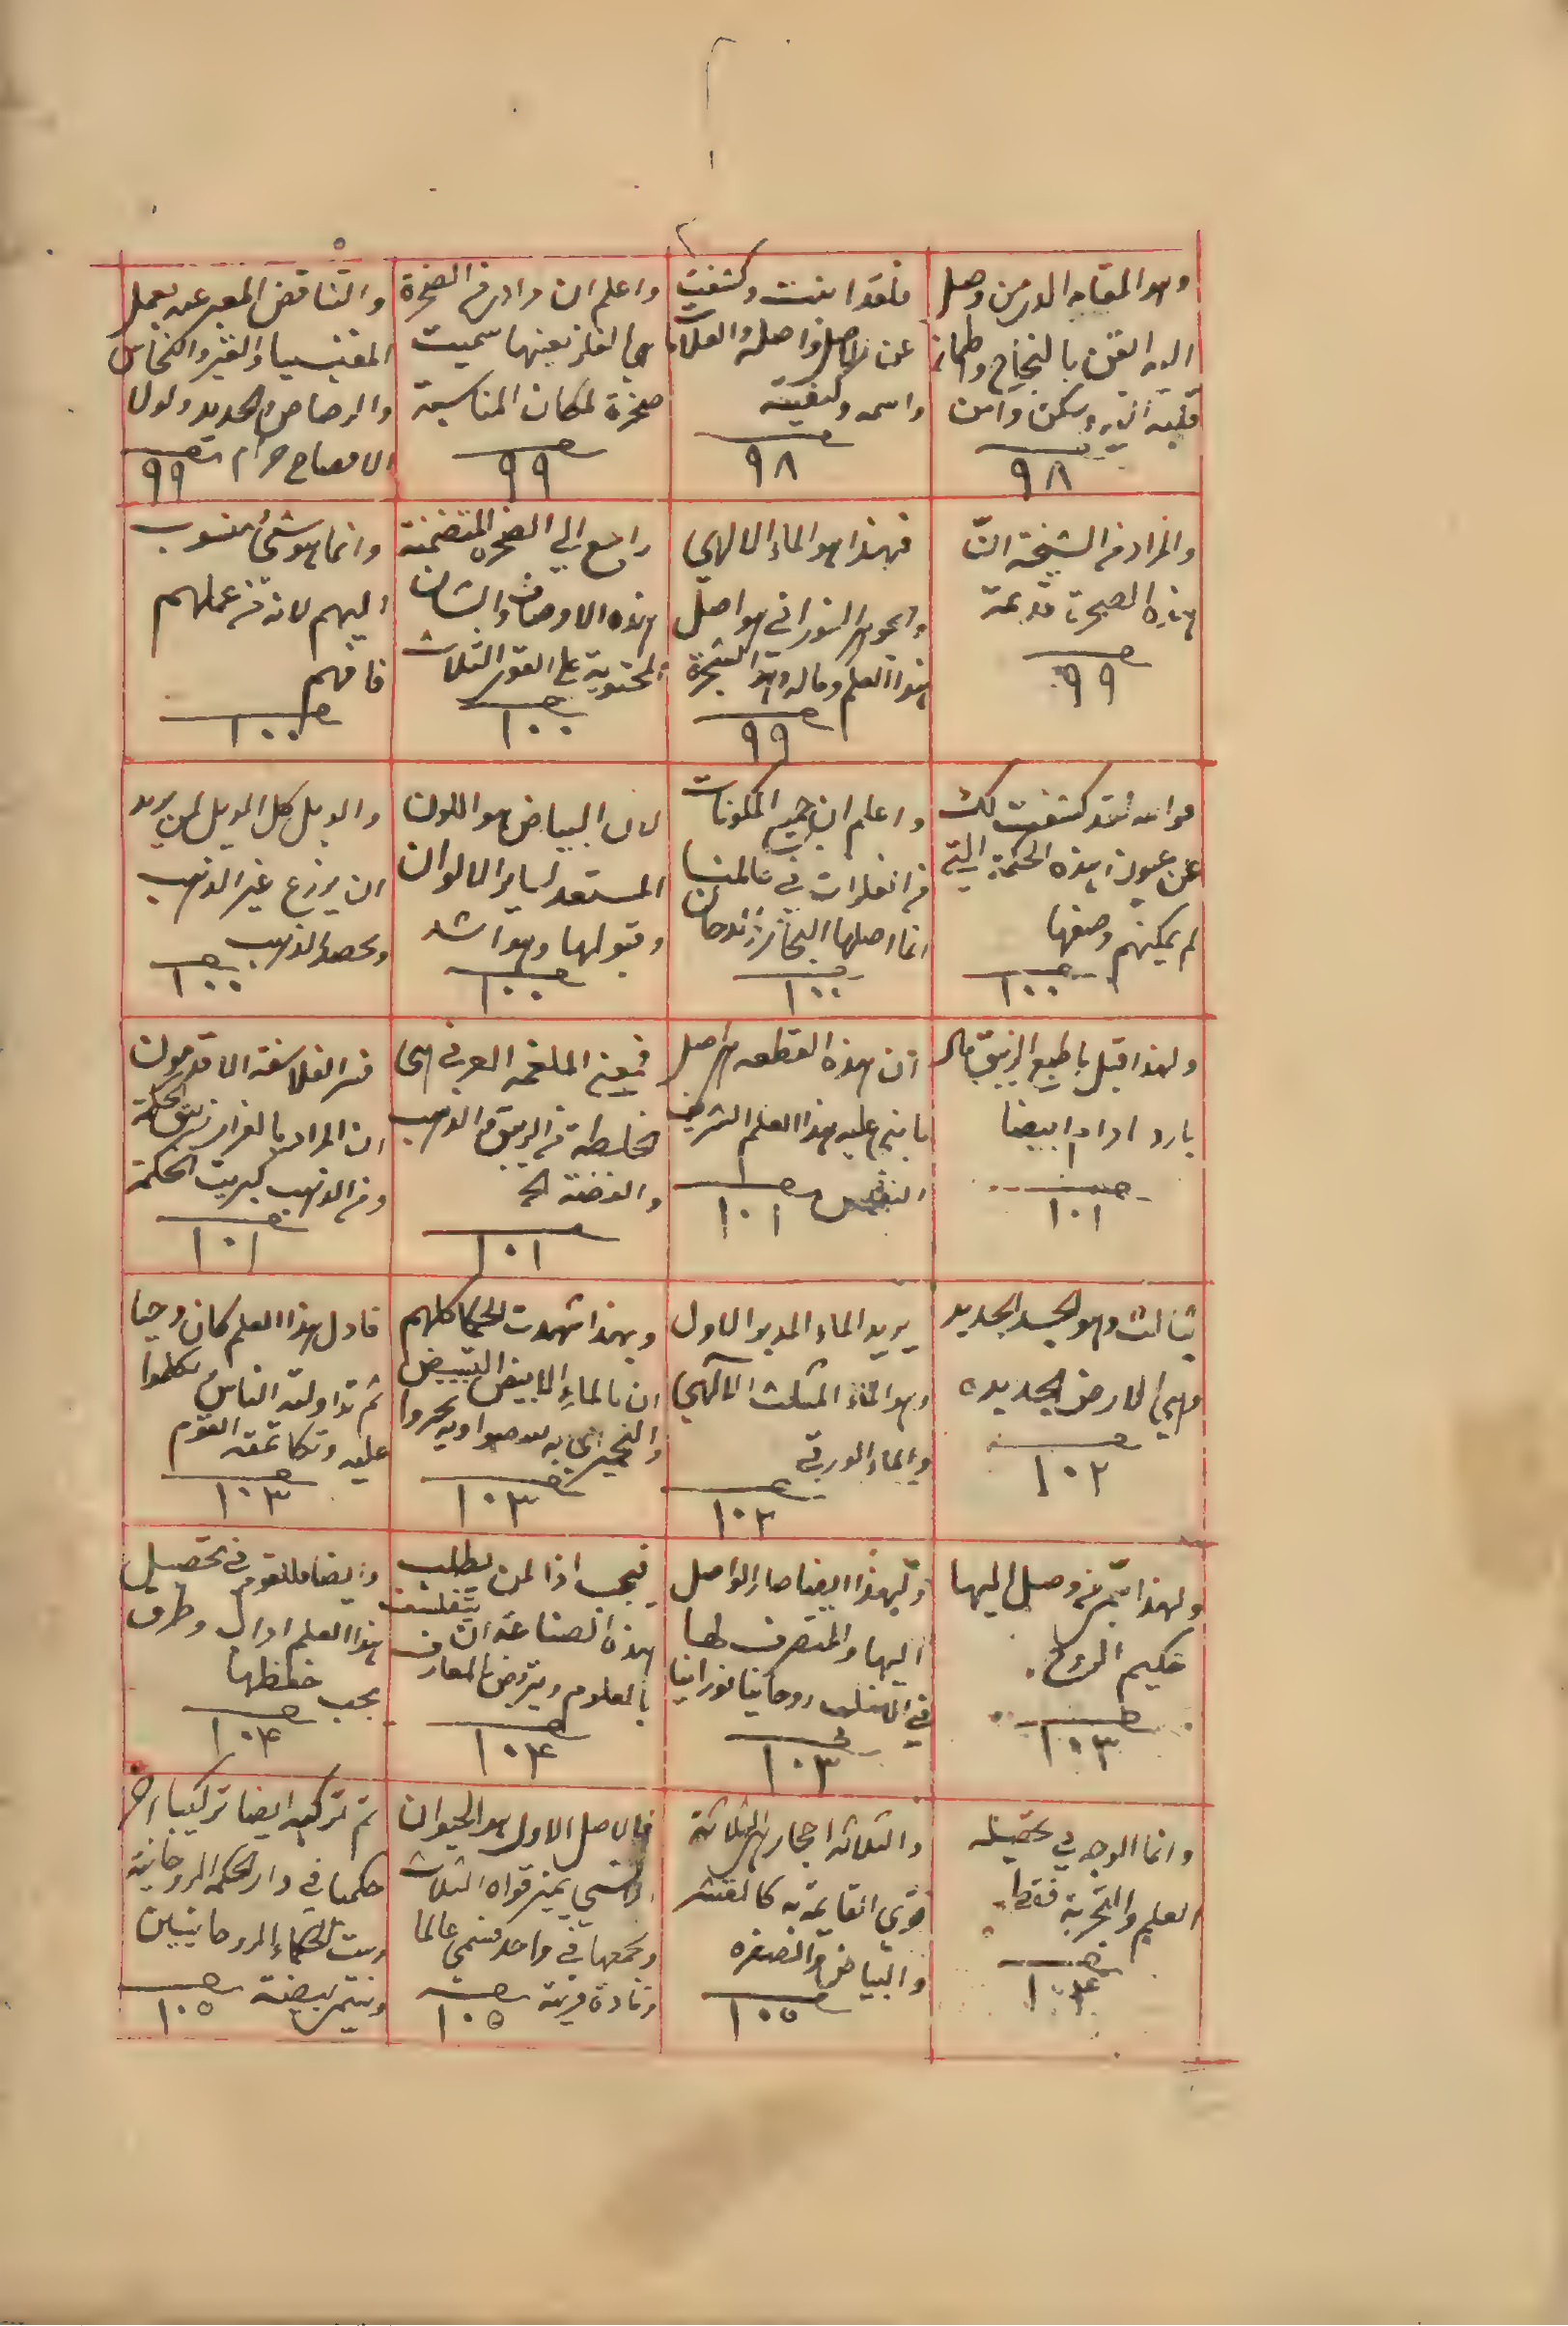 وهو المقام الذي من وصل
اليه ايقن بالنجاح وطمان
قلبه اليه وسكن وامن
صـ
٩٨
فلقد ابنت وكشفت
عن الاصل واصله والعلامات
واسمه وكيفيته
صـ
٩٨
واعلم ان مرادي من الصخرة
هي الفلز بعينها سميت
صخرة لمكان المناسبة
صـ
٩٩
والتناقض المعبر عنه بعمل
المغنيسياء والنحاس
والرصاص والحديد ولولا
الافصاح حرام
صـ
٩٩
والمراد من الشيخة ان
هذه الصخرة قديمة
صـ
٩٩
فهذا هو الماء الالهي
والجوهر النوراني هو اصل
هذا العلم وماله وهذا الشجرة
صـ
٩٩
راجع الي الصخرة المتضمنة
هذه الاوصاف والشان
المحتوية على القوى الثلاث
صـ
١٠٠
وانما هو شئ منسوب
اليهم لانه من عملهم
فافهم
صـ
١٠٠
فوالله لقد كشفت لك
عن عيون هذه الحكمة التي
لم يمكنهم وصفها
صـ
١٠٠
واعلم ان جميع المكونات
من الفلزات في عالمنا
انما اصلها البخار والدخان
صـ
١٠٠
لان البياض هو اللون
المستعد لساير الالوان
وقبولها وهو اشد
صـ
١٠٠
والويل كل الويل لمن يريد
ان يزرع غير الذهب
ويحصد الذهب
صـ
١٠٠
ولهذا قيل باطن الزيبق حار
بارد
صـ
١٠١
ان هذه القطعه هي اصل
ما بني عليه هذا العلم الشريف
النفيس
صـ
١٠١
فيعني الملغمه العرفي هي
مخلطة من الزيبق والذهب
والفضة الخ
١٠١
من الفلاسفة الاقدمون
ان المراد بالفرار زيبق الحكمة
ومن الذهب كبريت الحكمة
صـ
١٠١
ثالث وهو الجسد الجديد
وهي الارض الجديده
صـ
١٠٢
يريد الماء المدبر الاول
وهو الماء المثلث الالهي
والماء الورقي
صـ
١٠٢
وبهذا شهدت الحكما كلهم
ان بالماء الابيض التبييض
والتحمير
صـ
١٠٣
فاول هذا العلم كان وحيا
ثم تداولته الناس تكلموا
عليه وتكاتمته القوم
صـ
١٠٣
ولهذا سمي من وصل اليها
حكيم الروح
صـ
١٠٣
ولهذا ايضا صار الواصل
اليها والمتصرف لها
في العقل روحانيا نورانيا
صـ
١٠٣
فيجب اذا لمن يطلب
هذه الصناعة ان يتفلسف
بالعلوم ويتروض بالمعارف
صـ
١٠٤
وايضا فللقوم في تحصيل
هذا العلم احوال وطرق
يجب حفظها
صـ
١٠٤
وانما الوجه في تحصيله
العلم والتجربة فقط
صـ
١٠٤
والثلاثه احجار هي الثلاثة
قوى القايمة به كالقشر
والبياض والصفره
صـ
١٠٥
فالاصل الاول هو الحيوان
الذي يميز قواه الثلاث
ويجمعها في واحد فسمي عالما
صـ
١٠٥
ثم تركيبه ايضا تركيبا اخر
حكميا في دار الحكمة الروحانية
وبيت الحكماء الروحانيين
صـ
١٠٥